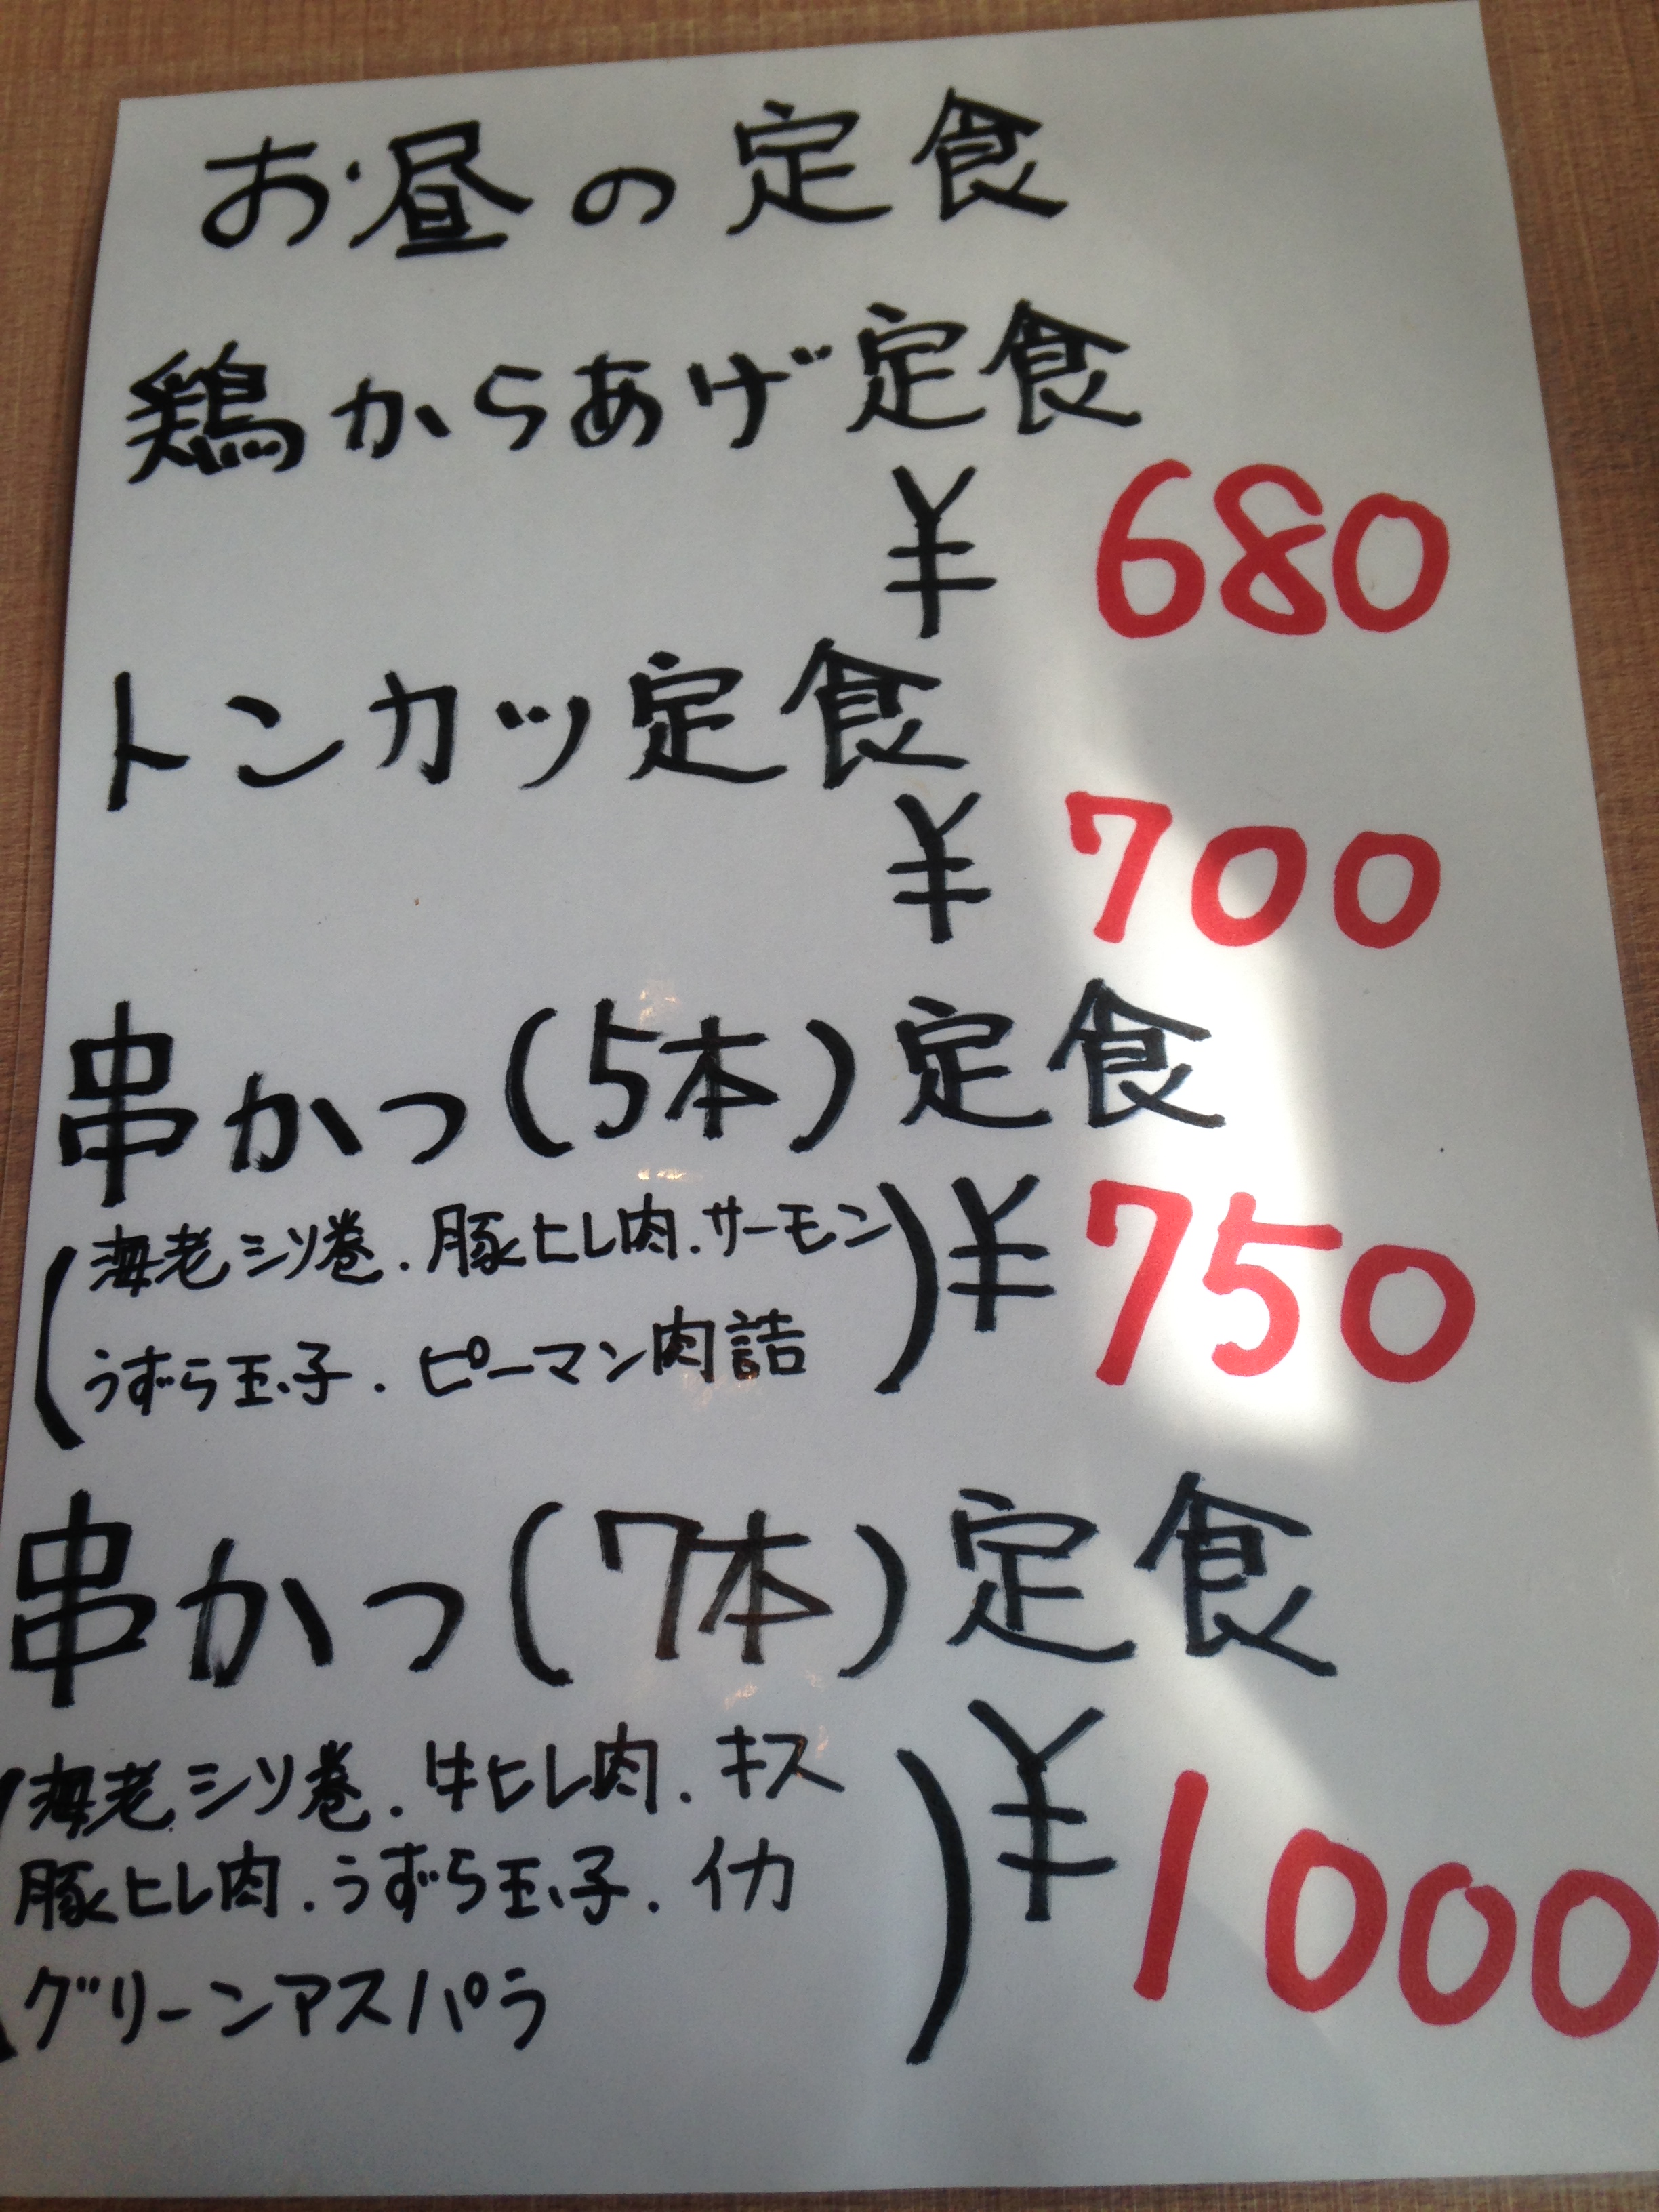 お昼の定食
鶏からあげ定食
¥ 680
トンカツ定食
¥ 700
串かつ(5本)定食
(海老シソ巻.豚ヒレ肉.サーモン
うずら玉子.ピーマン肉詰) ¥750
串かつ(7本)定食
(海老シソ巻.牛ヒレ肉.キス
豚ヒレ肉.うずら玉子.イカ
グリーンアスパラ) ¥1000